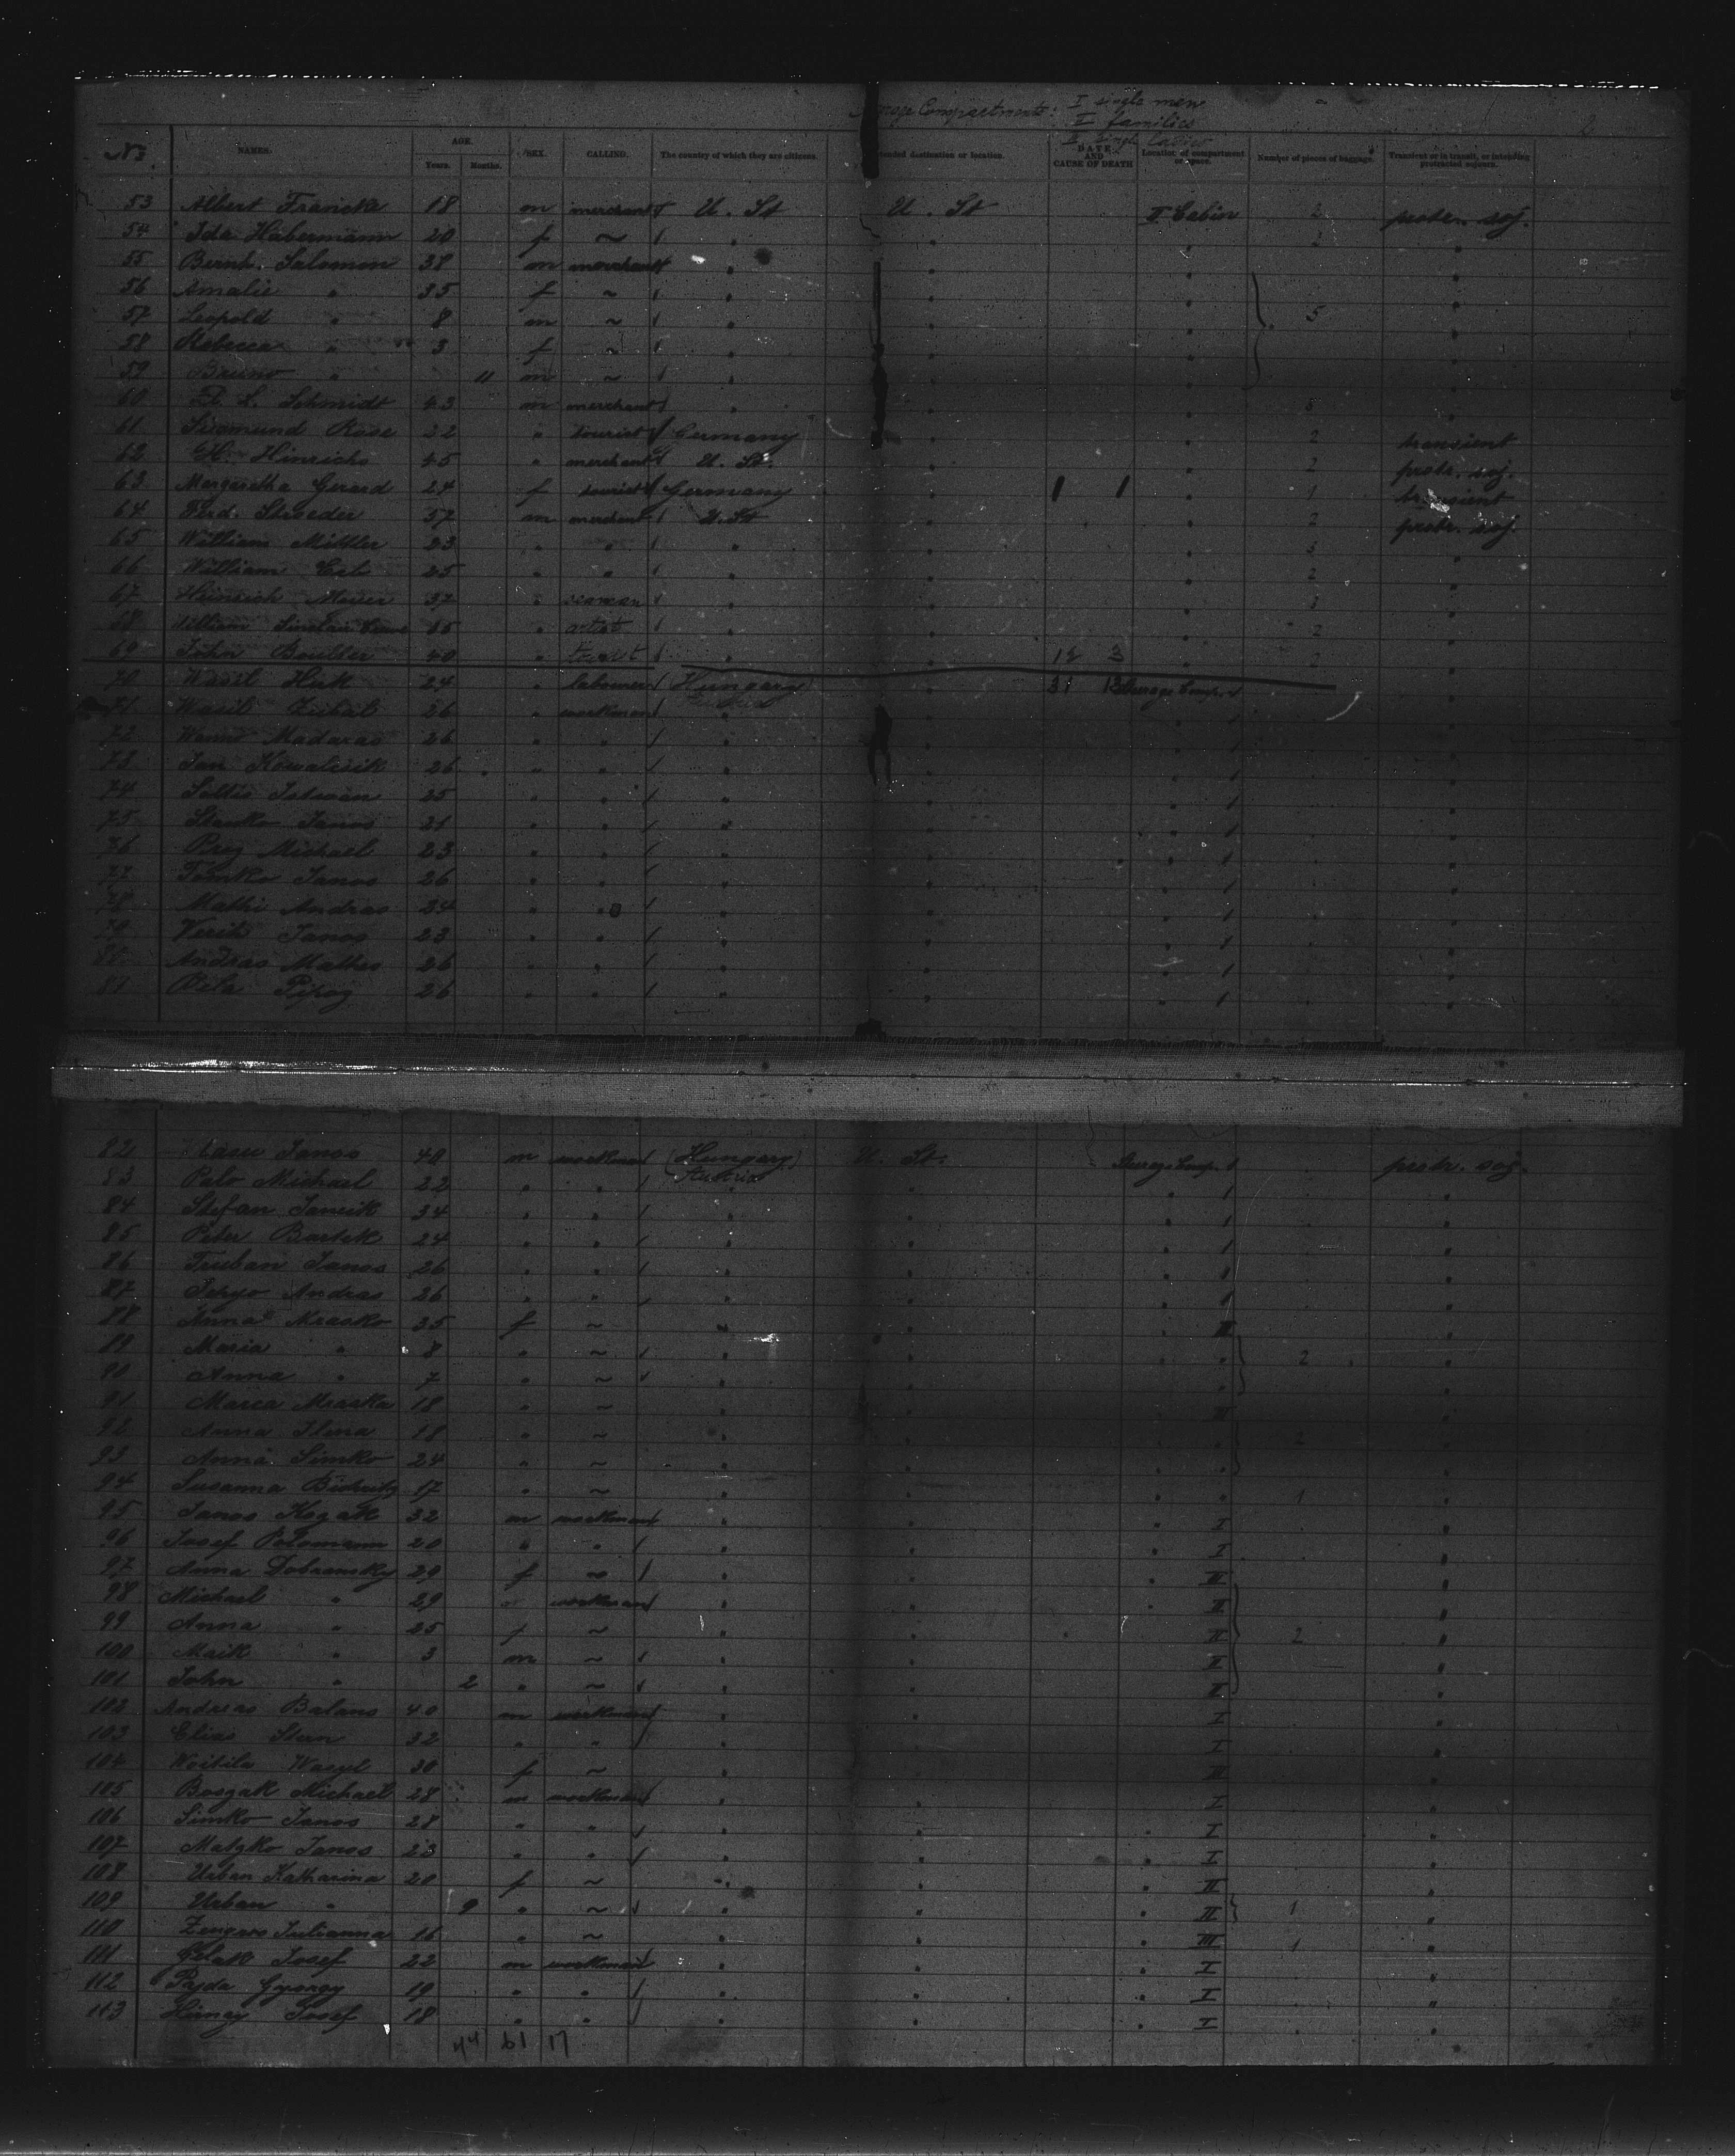 Compartments: I single men
II families
2
No. NAMES. AGE. Years. Months. SEX. CALLING. The country of which they are citizens. Intended destination or location. DATE AND CAUSE OF DEATH Location of compartment or space. Number of pieces of baggage. Transient or in transit, or intending protracted sojourn.
53 Albert Francke 18 m merchant U. St U. St II Cabin 2 protr. soj.
54 Ida Habermann 20 f ~ " " " 2 "
55 Bernh. Salomon 38 m merchant " " " "
56 Amalie " 35 f ~ " " " "
57 Leopold " 8 m ~ " " " 5 "
58 Rebecca " 3 f ~ " " " "
59 Bruno " 11 m ~ " " " "
60 L. Schmidt 43 m merchant " " " 3 "
61 Siegmund Rose 22 " tourist Germany " " 2 transient
62 H. Hinrichs 45 " merchant U. St. " " 2 protr. soj.
63 Margaretha Gerard 24 f tourist Germany " " 1 transient
64 Ferd. Shroeder 57 m merchant U. St " " 2 protr. soj.
65 William Mittler 23 " " " " " 3 "
66 William 25 " " " " " 2 "
67 Heinrich Meyer 37 " seaman " " " 1 "
68 William Sinclair 55 " artist " " " 2 "
69 John Boutler 40 " tourist " " 12 3 " 2 "
70 Wasil Huk 24 " labourer (Hungary) " 31 12 Steerage Comp. I "
71 Wasil 26 " workman Austria " " I "
72 Madaras 26 " " " " " I "
73 Jan Kowalcsik 26 " " " " " I "
74 Soltis Istvan 25 " " " " " I "
75 Stanko Janos 21 " " " " " I "
76 Michael 23 " " " " " I "
77 Tomko Janos 26 " " " " " I "
78 Mathi Andras 24 " " " " " I "
79 Janos 23 " " " " " I "
80 Andras Mathes 26 " " " " " I "
81 Bela 26 " " " " " I "
82 Janos 40 m workman (Hungary) U. St. Steerage Comp. I protr. soj.
83 Palo Michael 22 " " Austria " " I "
84 Stefan Jancsik 34 " " " " " I "
85 Peter Bartek 24 " " " " " I "
86 Truban Janos 26 " " " " " I "
87 Andras 26 " " " " " I "
88 Anna Mrasko 35 f ~ " " " III "
89 Maria " 8 " ~ " " " " 2 "
90 Anna " 7 " ~ " " " "
91 Maria Mraska 18 " ~ " " III "
92 Anna Ilina 18 " ~ " " " 2 "
93 Anna Simko 24 " ~ " " " "
94 Susanna 17 " ~ " " " " 1 "
95 Janos Kozak 32 m workman " " " I "
96 Josef 20 " " " " " I "
97 Anna Dobransky 29 f ~ " " " III "
98 Michael " 29 m workman " " " II "
99 Anna " 25 f ~ " " II 2 "
100 Maik " 3 m ~ " " II "
101 John " 2 " ~ " " II "
102 Andreas Balans 40 m workman " " I "
103 Elias Stern 32 " " " " I "
104 Woitila Wasyl 30 f ~ " " III "
105 Bosgak Michael 28 m workman " " I "
106 Simko Janos 28 " " " " " I "
107 Matzko Janos 23 " " " " " I "
108 Urban Katharina 20 f ~ " " " II "
109 Urban " 9 " ~ " " " II 1 "
110 Julianna 16 " ~ " " " III 1 "
111 Josef 22 m workman " " " I "
112 Pajda Gyorgy 19 " " " " " I "
113 Josef 18 " " " " " I "
44 61 17